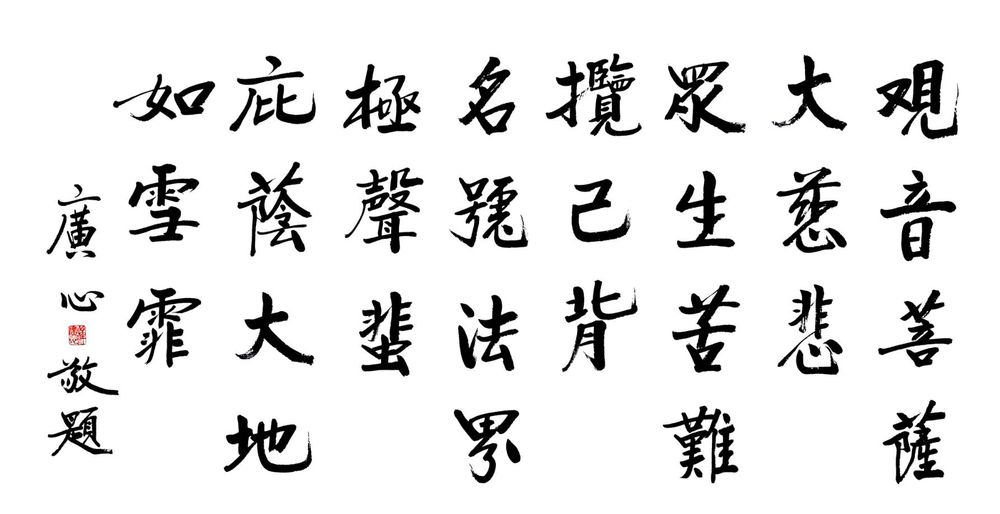 观音菩薩
大慈悲
眾生苦難
攬己背
名號法界
極聲蜚
庇蔭大地
如雪霏
廣心敬題